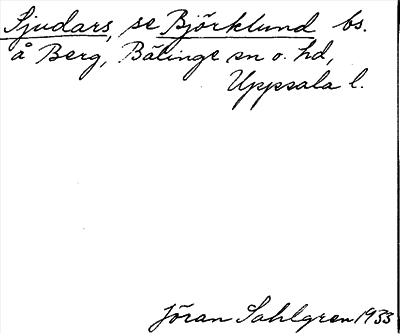 Sjudars, se Björklund bs.
å Berg, Bälinge sn o. hd,
Uppsala l.
Jöran Sahlgren 1933